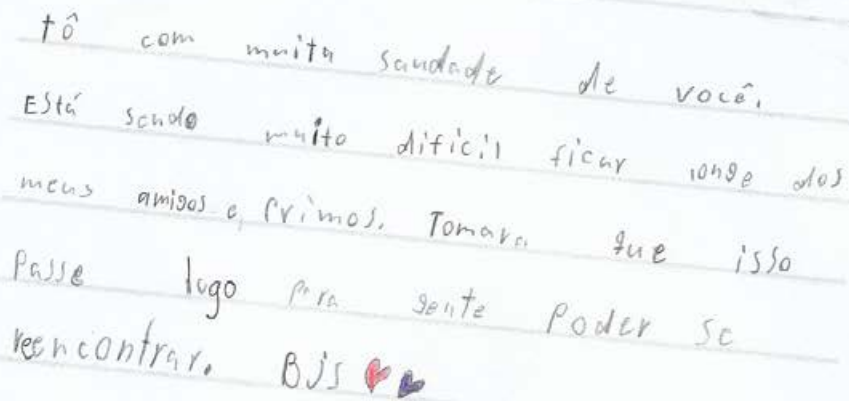 tô com muita saudade de você.
Está sendo muito dificil ficar longe dos
meus amigos e primos. Tomara que isso
Passe logo pra gente Poder se
reencontrar. BJS